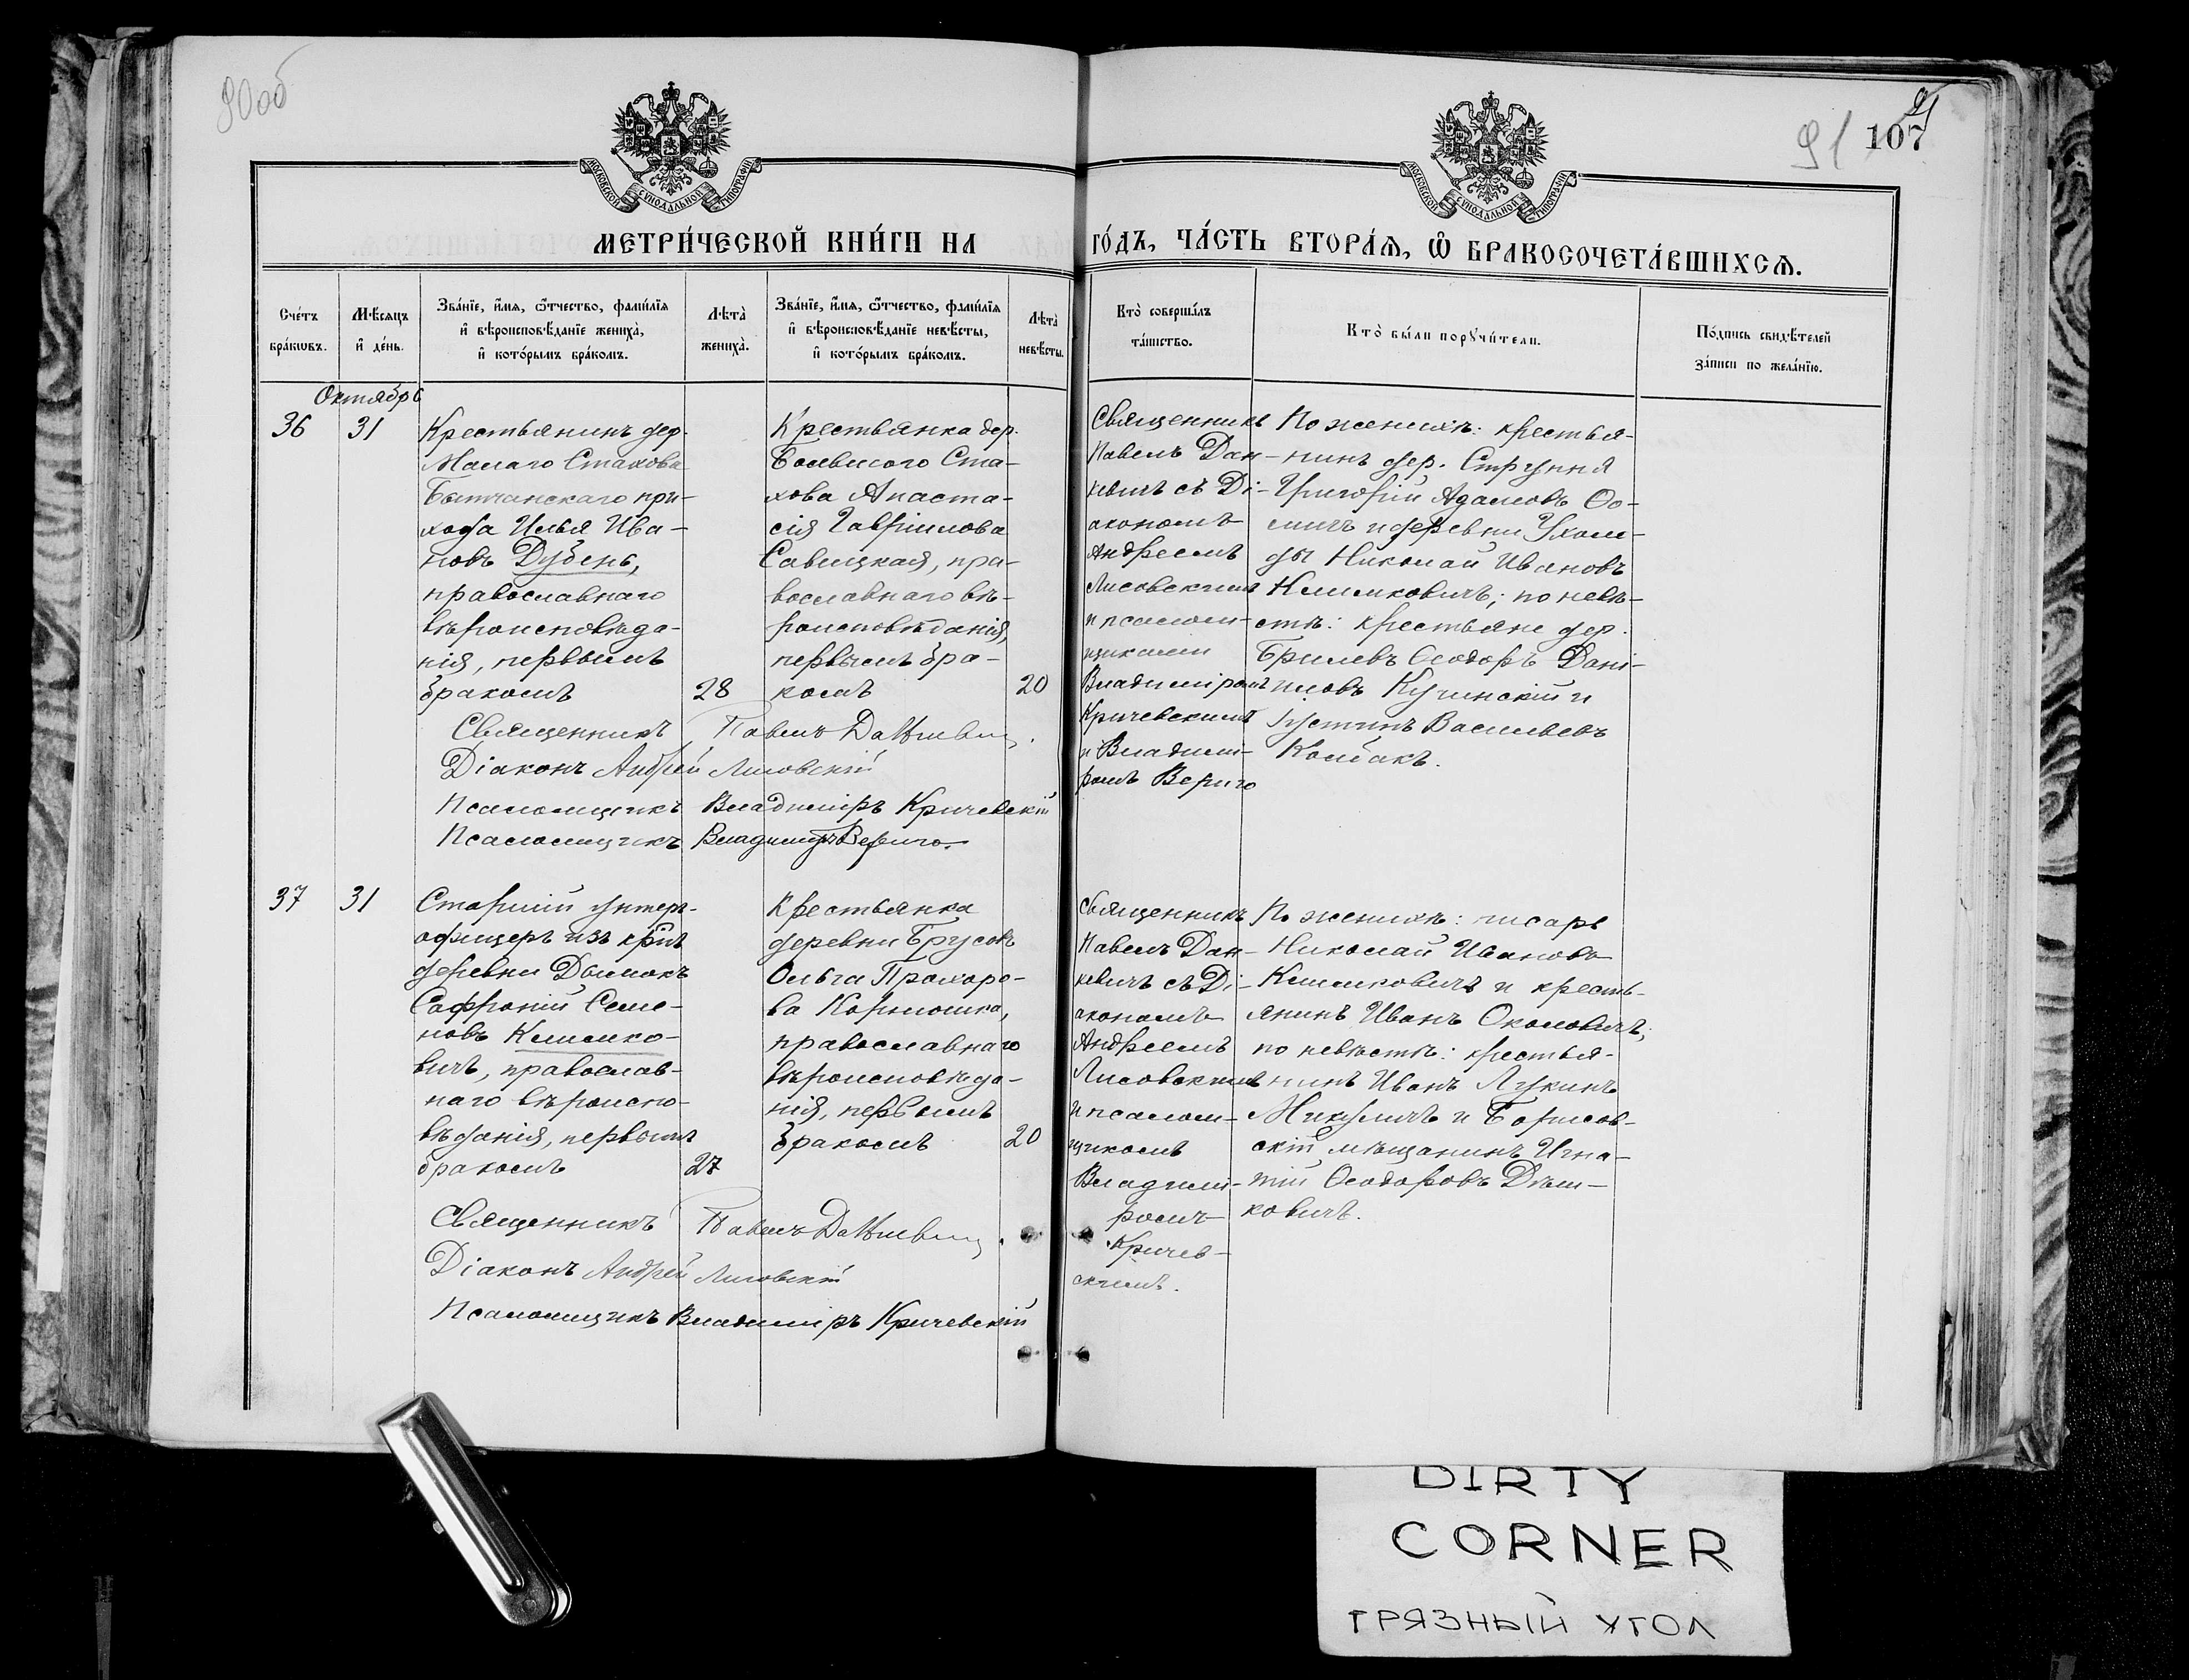 90об
91
107
МОСКОВСКОЙ СѴНОДАЛЬНОЙ ТИПОГРАФІИ
МОСКОВСКОЙ СѴНОДАЛЬНОЙ ТИПОГРАФІИ
МЕТРИ́ЧЕСКОЙ КНИ́ГИ НА
ГО́ДЪ, ЧА́СТЬ ВТОРА́Ѧ, Ѽ БРАКОСОЧЕТА́ВШИХСѦ.
Сче́тъ
бра́кѡвъ.
Мѣ́сѧцъ
и҆ де́нь.
Зва́нїе, и҆́мѧ, ѻ҆́тчество, фами́лїѧ
и҆ вѣроисповѣ́данїе жениха̀,
и҆ кото́рымъ бра́комъ.
Лѣта̀
жениха̀.
Зва́нїе, и҆́мѧ, ѻ҆́тчество, фами́лїѧ
и҆ вѣроисповѣ́данїе невѣ́сты,
и҆ кото́рымъ бра́комъ.
Лѣта̀
невѣ́сты.
Кто̀ соверша́лъ
та́инство.
Кто̀ бы́ли порꙋчи́тели.
По́дпись свидѣ́телей
за́писи по жела́нїю.
Октябрь
36
31
Крестьянинъ дер.
Малаго Стахова
Бытчанскаго при-
хода Илья Ива-
новъ Дубень,
православнаго
вѣроисповѣда-
нія, первымъ
бракомъ
28
Крестьянка дер.
Большого Ста-
хова Анаста-
сія Гавріилова
Савицкая, пра-
вославнаго вѣ-
роисповѣданія,
первымъ бра-
комъ
20
Священникъ
Павелъ Дан-
кевичъ съ Ді-
акономъ
Андреемъ
Лисовскимъ
и псалом-
щиками
Владиміромъ
Кричевскимъ
и Владими-
ромъ Вериго
По женихѣ: крестья-
нинъ дер. Струпня
Григорій Адамовъ Ѳо-
мичъ и деревни Ухол-
ды Николай Ивановъ
Климковичъ; по невѣ-
стѣ: крестьяне дер.
Брилевъ Ѳеодоръ Дані-
иловъ Кучинскій и
Іустинъ Васильевъ
Колбакъ.
Священникъ Павелъ Данкевич.
Діаконъ Андрей Лисовскій
Псаломщикъ Владиміръ Кричевскій
Псаломщикъ Владимиръ Вериго.
37
31
Старшій унтеръ-
офицеръ изъ кр-нъ
деревни Дымокъ
Сафроній Семе-
новъ Климко-
вичъ, православ-
наго вѣроиспо-
вѣданія, первымъ
бракомъ
27
Крестьянка
деревни Брусокъ
Ольга Прохоро-
ва Корношка,
православнаго
вѣроисповѣда-
нія, первымъ
бракомъ
20
Священникъ
Павелъ Дан-
кевичъ съ Ді-
акономъ
Андреемъ
Лисовскимъ
и псалом-
щикомъ
Владими-
ромъ
Кричев-
скимъ.
По женихѣ: писарь
Николай Ивановъ
Климковичъ и кресть-
янинъ Иванъ Околовичъ;
по невѣстѣ: крестья-
нинъ Иванъ Лукинъ
Микуличъ и Борисов-
скій мѣщанинъ Игна-
тій Ѳеодоровъ Дѣш-
ковичъ.
Священникъ Павелъ Данкевич.
Діаконъ Андрей Лисовскій
Псаломщикъ Владиміръ Кричевскій
DIRTY
CORNER
ГРЯЗНЫЙ УГОЛ